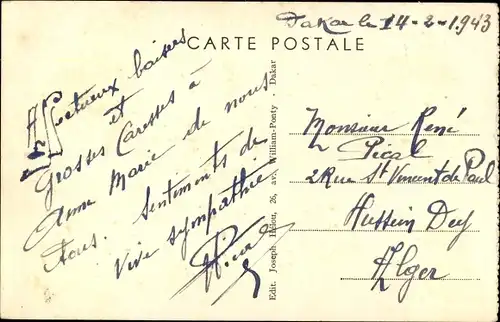 Dakar le 14-2-1943
CARTE POSTALE
Affectueux baisers
et
Grosses Caresses à
Anna Marie de nous
tous. Sentiments de
Vive sympathie
Edit. Joseph 26, av. William-Ponty - Dakar
Monsieur René
Pical
2 Rue St Vincent de Paul
Hussein Dey
Alger